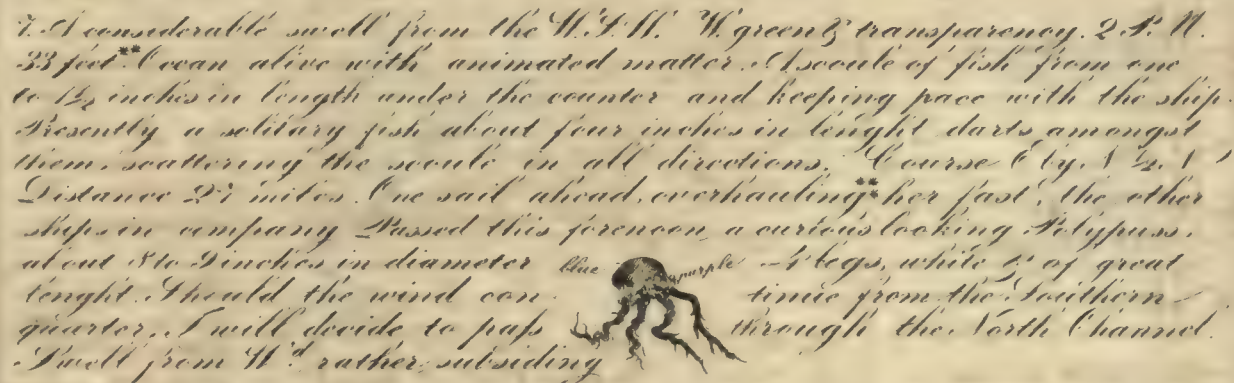 7. A considerable swell from the W.S.W. W. green & transparency. 2 P.M.
33 feet.** Ocean alive with animated matter. A scoule of fish from one
to 1½ inches in length under the counter and keeping pace with the ship.
Presently a solitary fish about four inches in lenght darts amongst
them, scattering the scoule in all directions. Course E by. S ½. S
Distance miles. One sail ahead, overhauling** her fast, the other
ships in company Passed this forenoon, a curious looking Polypuss,
about 8 to 9 inches in diameter blue purple 4 legs, white & of great
lenght. Should the wind con. tinue from the Southern
quarter. I will decide to pass through the North Channel.
Swell from Wd. rather subsiding